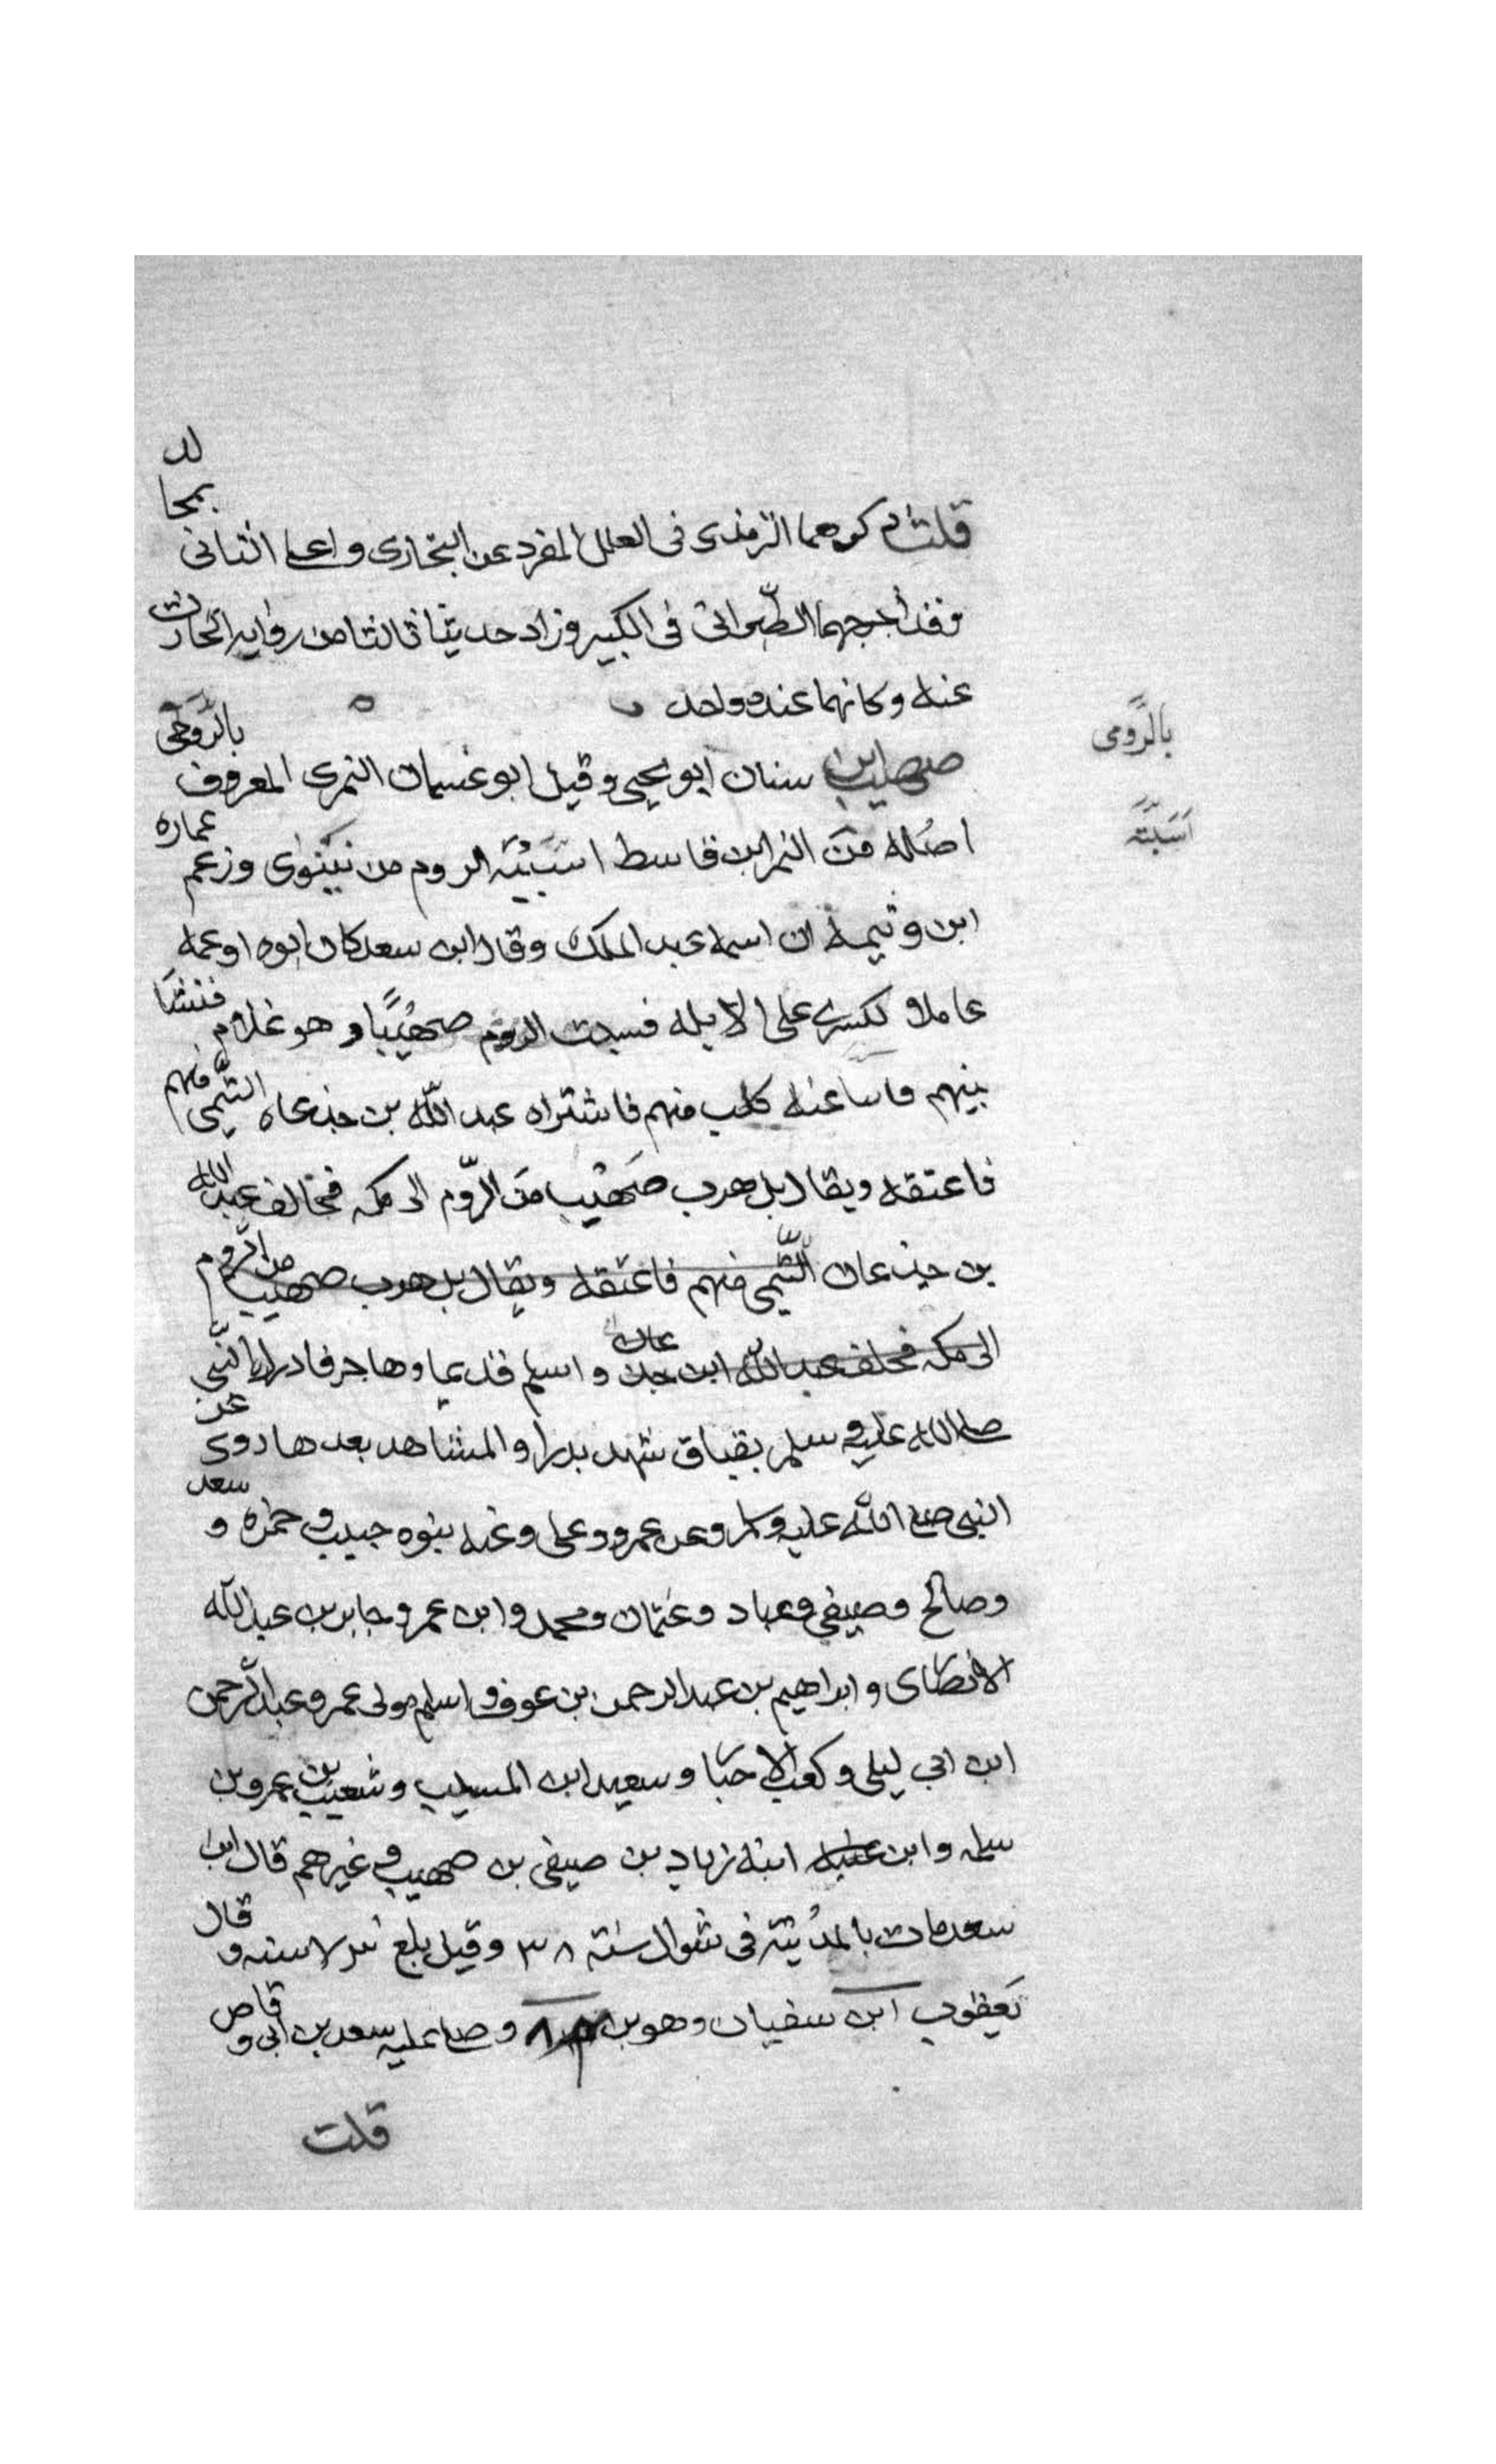 قلت ذكرهما الترمذى فى العلل المفرد عن البخارى واعل الثانى بمجالد
وقد أخرجهما الطبرانى فى الكبير وزاد حديثا ثالثا من رواية الحارث
عنه وكانهما عنده واحد
صهيب ابن سنان ابو يحيى وقيل ابو غسان النمرى المعروف بالرّومى
بالرّومى
اصله من النمر ابن قاسط اسَبَتْه الروم من نينوى وزعم عماره
اَسَبَتَّه
ابن وثيمة ان اسمه عبد الملك وقال ابن سعد كان ابوه او عمه
عاملا لكسرى على الابله فسبت الروم صهيبًا وهو غلام فنشا
بينهم فابتاعته كلب منهم فاشتراه عبد اللّه بن جذعان التّيمى منهم
فاعتقه ويقال بل هرب صَهْيب من الرّوم الى مكه فحالف عبد الله
بن جذعان التّيمى منهم فاعتقه ويقال بل هرب صهيب من الرّوم
الى مكه فحلف عبد اللّه ابن جدعان واسلم قديما وهاجر فادرك النّبى
صلى الله عليه وسلم بقباق شهد بدرا والمشاهد بعدها روى عن
النبى صلى اللّه عليه وسلم وعن عمرو وعلى وعنه بنوه حبيب و حمزه و سعد
وصالح وصيفى وعباد وعثمان ومحمد وابن عمر وجابر بن عبد اللّه
الانصاى وابراهيم بن عبد الرحمن بن عوف واسلم مولى عمر وعبد الرحمن
ابن ابى ليلى وكعب الاحبا وسعيد ابن المسيب وشعيب بن عمرو بن
سلمه وابن ابنه زياد بن صيفى بن صهيب وغيرهم قال ابن
سعد مات بالمدُينة فى شوال سنة ٣٨ وقيل بلغ سنه و قال
يعقوب ابن سفيان وهو بن وصلى عليه سعد بن ابى وقاص
قلت